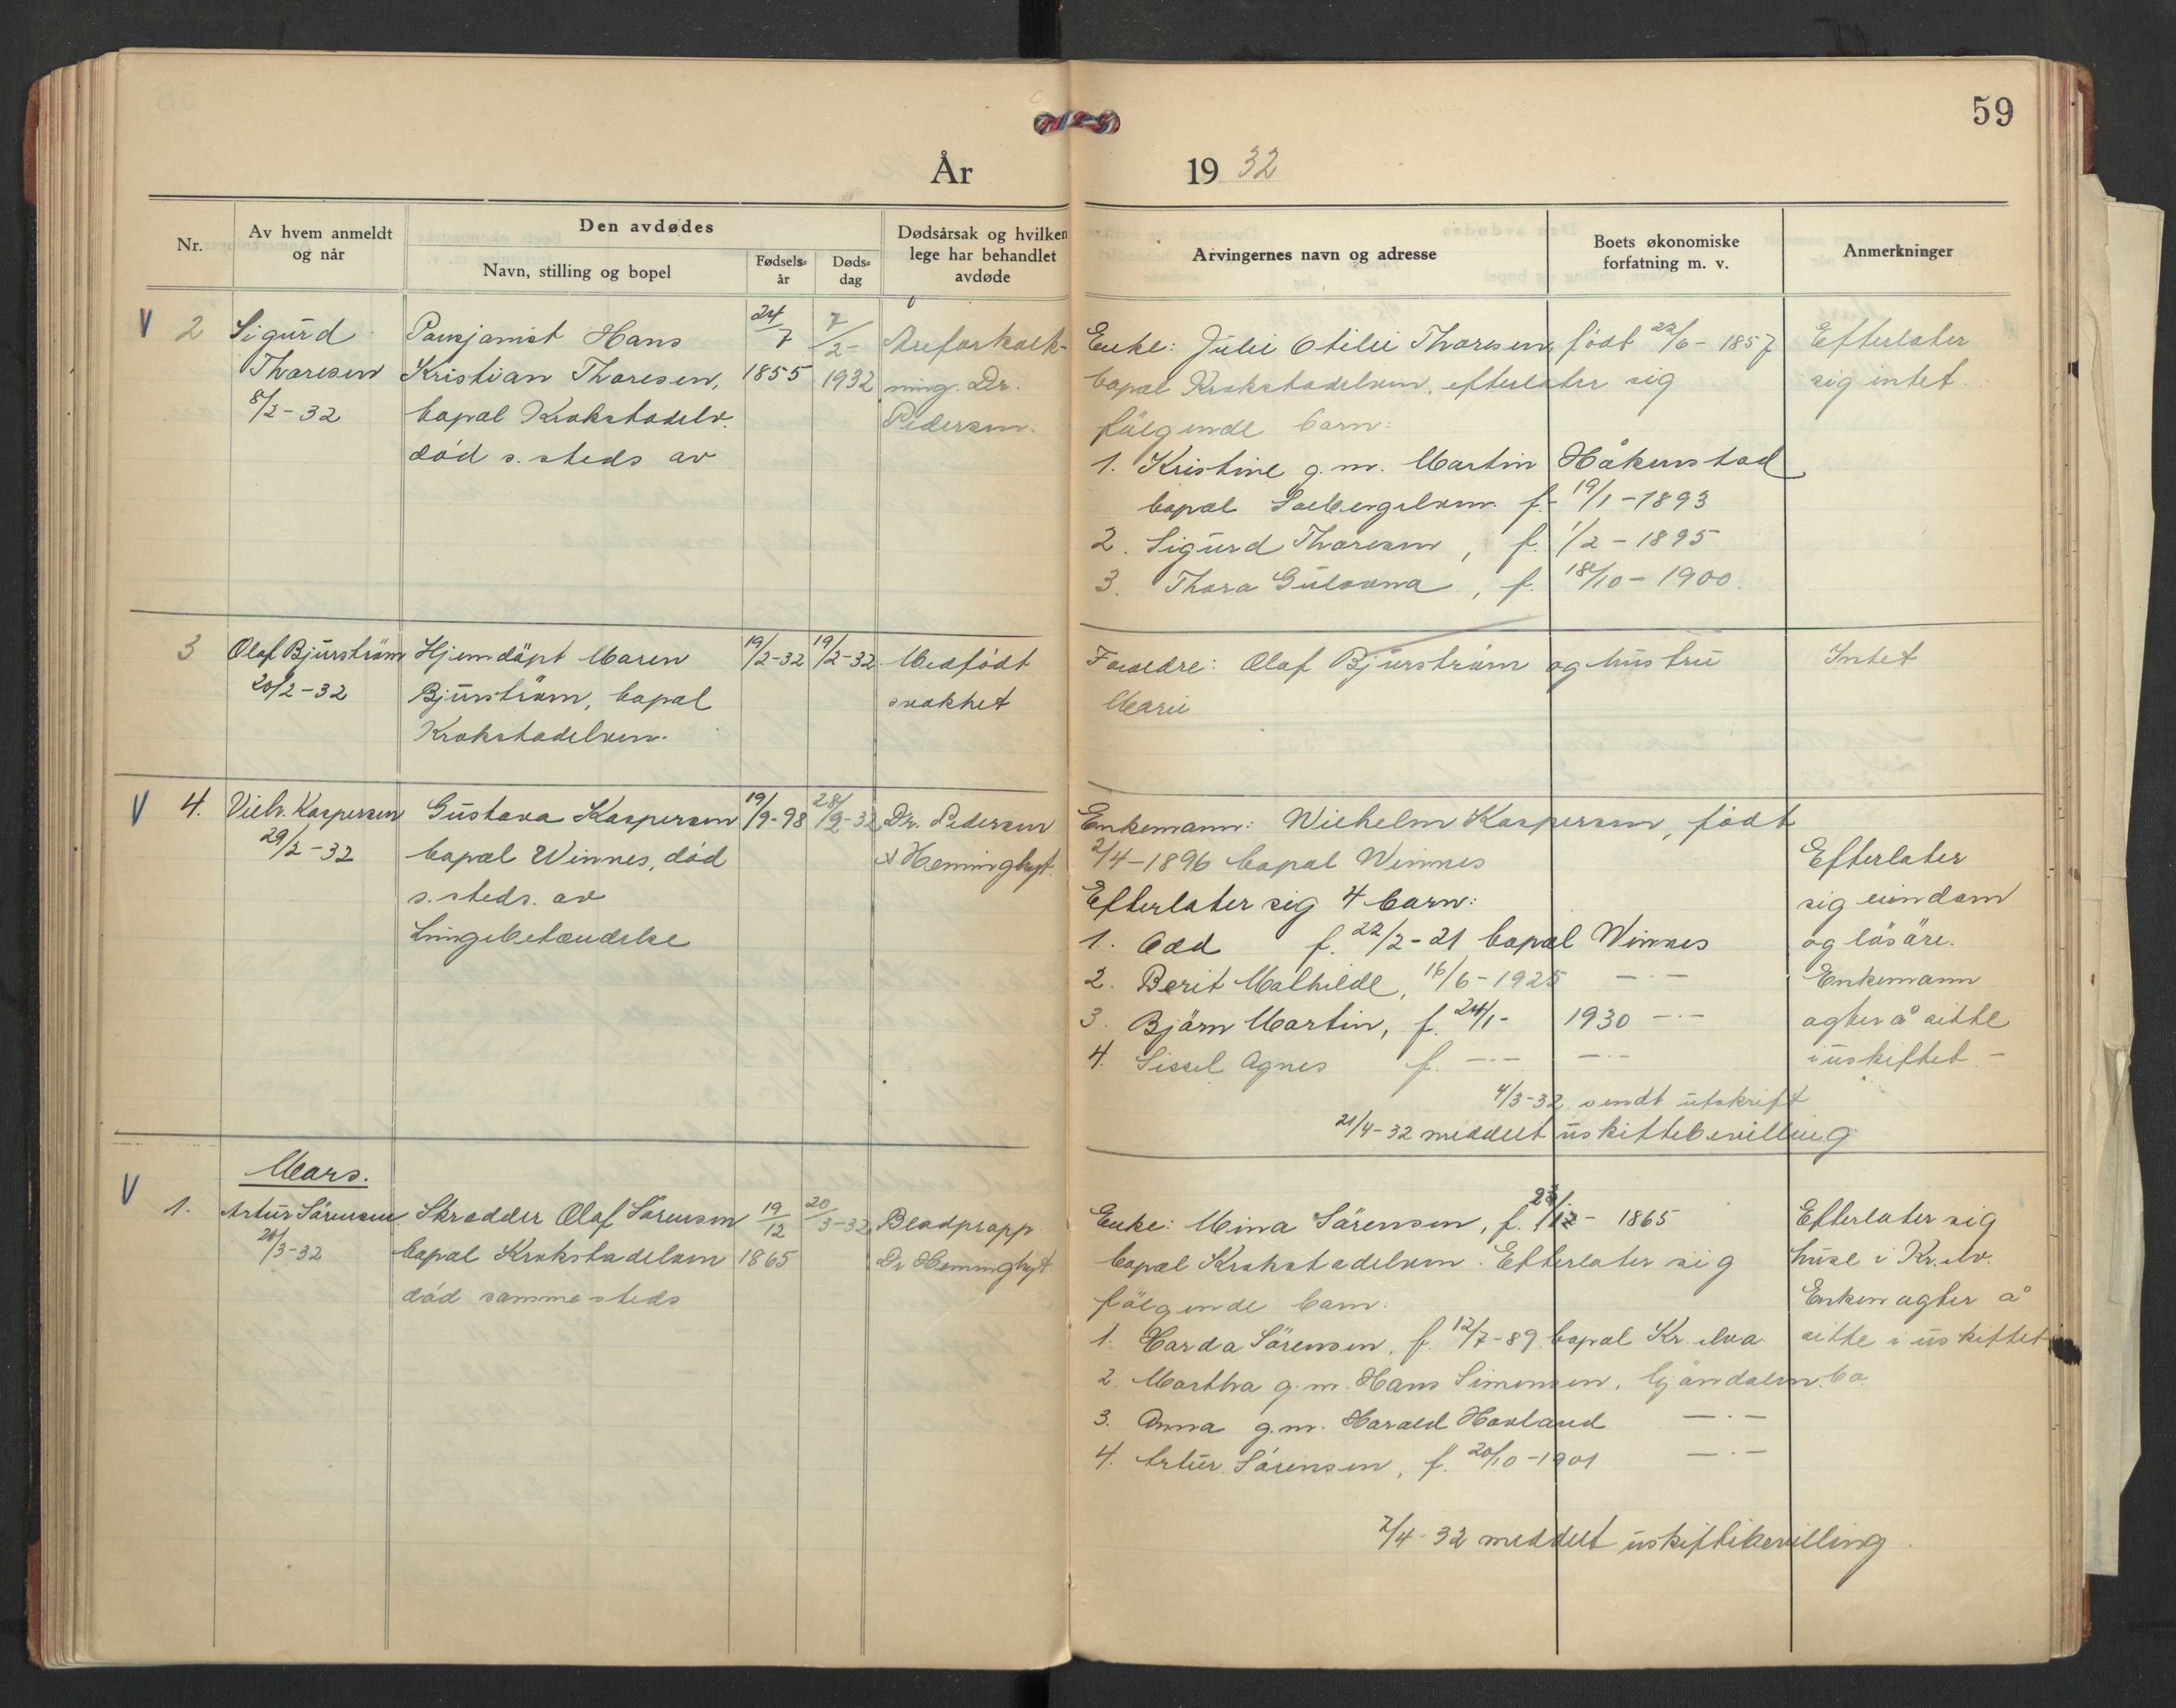 59
År 1932
Nr.
Av hvem anmeldt og når
Den avdødes
Navn, stilling og bopel
Fødsels-år
Døds-dag
Dødsårsak og hvilken lege har behandlet avdøde
Arvingernes navn og adresse
Boets økonomiske forfatning m. v.
Anmerkninger
V 2
Sigurd
Thoresen
8/2-32
Pensjonist Hans
Kristian Thoresen,
bopæl Krokstadelv.
död s. steds av
24/7
1855
7/2-
1932
Areforkalk-
ning. Dr.
Pedersen.
Enke: Julie Otilie Thoresen, födt 22/6-1857
bopæl Krokstadelven, efterlater sig
fölgende barn:
1. Kristine g.m. Martin Håkenstad
bopæl Solbergelven f. 19/1-1893
2. Sigurd Thoresen, f. 1/2-1895
3. Thora Gulovna, f. 18/10-1900.
Efterlater
sig intet.
3
Olaf Bjurström
20/2-32
Hjemdöpt Maren
Bjurström, bopæl
Krokstadelven.
19/2-32
19/2-32
Medfödt
svakhet
Foreldre: Olaf Bjurström og hustru
Marie
Intet
V 4.
Vilh. Kaspersen
29/2-32
Gustava Kaspersen
bopæl Winnes, död
s. steds. av
Lungebetændelse
19/9-98
28/2-32
Dr. Pedersen
& Hemingbyt.
Enkemann: Wilhelm Kaspersen, födt
2/4-1896 bopæl Winnes
Efterlater sig 4 barn:
1. Odd f. 22/2-21 bopæl Winnes
2. Berit Mathilde, 16/6-1925 —·—
3. Björn Martin, f. 24/1-1930 —·—
4. Sissel Agnes f. —·— —·—
4/3-32 sendt utskrift
21/4-32 meddelt uskiftebevilling
Efterlater
sig eiendom
og lösöre.
Enkemann
agter å sitte
i uskiftet.-
Mars.
V 1.
Artur Sörensen
20/3-32
Skredder Olaf Sörensen
bopæl Krokstadelven
död sammesteds
19/12
1865
20/3-32
Blodpropp.
Dr Hemingbyt.
Enke: Mina Sörensen, f. 23/12-1865
bopæl Krokstadelven. Efterlater sig
fölgende barn:
1. Harda Sörensen, f. 12/7-89. bopæl Kr. elva
2. Martha g.m. Hans Simensen, Mjöndalen. bo.
3. Anna g.m. Harald Hovland —·—
4. Artur Sörensen, f. 20/10-1901 —·—
7/4-32 meddelt uskiftebevilling.
Efterlater sig
huse i Kr.elv.
Enken agter å
sitte i uskiftet